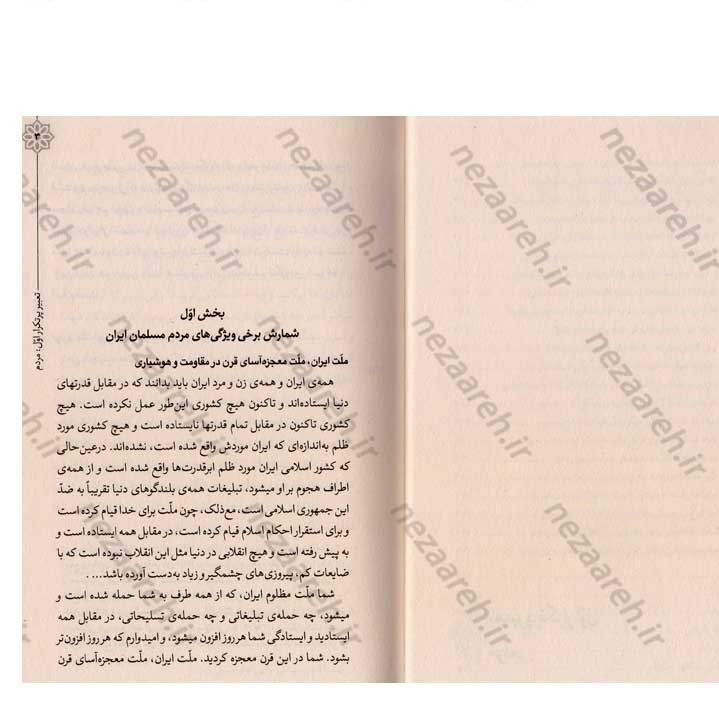 ۳
تعبیر پرتکرار اوّل: مردم
بخش اوّل
شمارش برخی ویژگی‌های مردم مسلمان ایران
ملّت ایران، ملّت معجزه‌آسای قرن در مقاومت و هوشیاری
همه‌ی ایران و همه‌ی زن و مرد ایران باید بدانند که در مقابل قدرتهای
دنیا ایستاده‌اند و تاکنون هیچ کشوری این‌طور عمل نکرده است. هیچ
کشوری تاکنون در مقابل تمام قدرتها نایستاده است و هیچ کشوری مورد
ظلم به‌اندازه‌ای که ایران موردش واقع شده است، نشده‌اند. درعین‌حالی
که کشور اسلامی ایران مورد ظلم ابرقدرت‌ها واقع شده است و از همه‌ی
اطراف هجوم بر او میشود، تبلیغات همه‌ی بلندگوهای دنیا تقریباً به ضدّ
این جمهوری اسلامی است، مع‌ذلک، چون ملّت برای خدا قیام کرده است
و برای استقرار احکام اسلام قیام کرده است، در مقابل همه ایستاده است و
به پیش رفته است و هیچ انقلابی در دنیا مثل این انقلاب نبوده است که با
ضایعات کم، پیروزی‌های چشمگیر و زیاد به‌دست آورده باشد... .
شما ملّت مظلوم ایران، که از همه طرف به شما حمله شده است و
میشود، چه حمله‌ی تبلیغاتی و چه حمله‌ی تسلیحاتی، در مقابل همه
ایستادید و ایستادگی شما هر روز افزون میشود، و امیدوارم که هر روز افزون‌تر
بشود. شما در این قرن معجزه کردید. ملّت ایران، ملّت معجزه‌آسای قرن
nezaareh.ir
nezaareh.ir
nezaareh.ir
nezaareh.ir
nezaareh.ir
nezaareh.ir
nezaareh.ir
nezaareh.ir
nezaareh.ir
nezaareh.ir
nezaareh.ir
nezaareh.ir